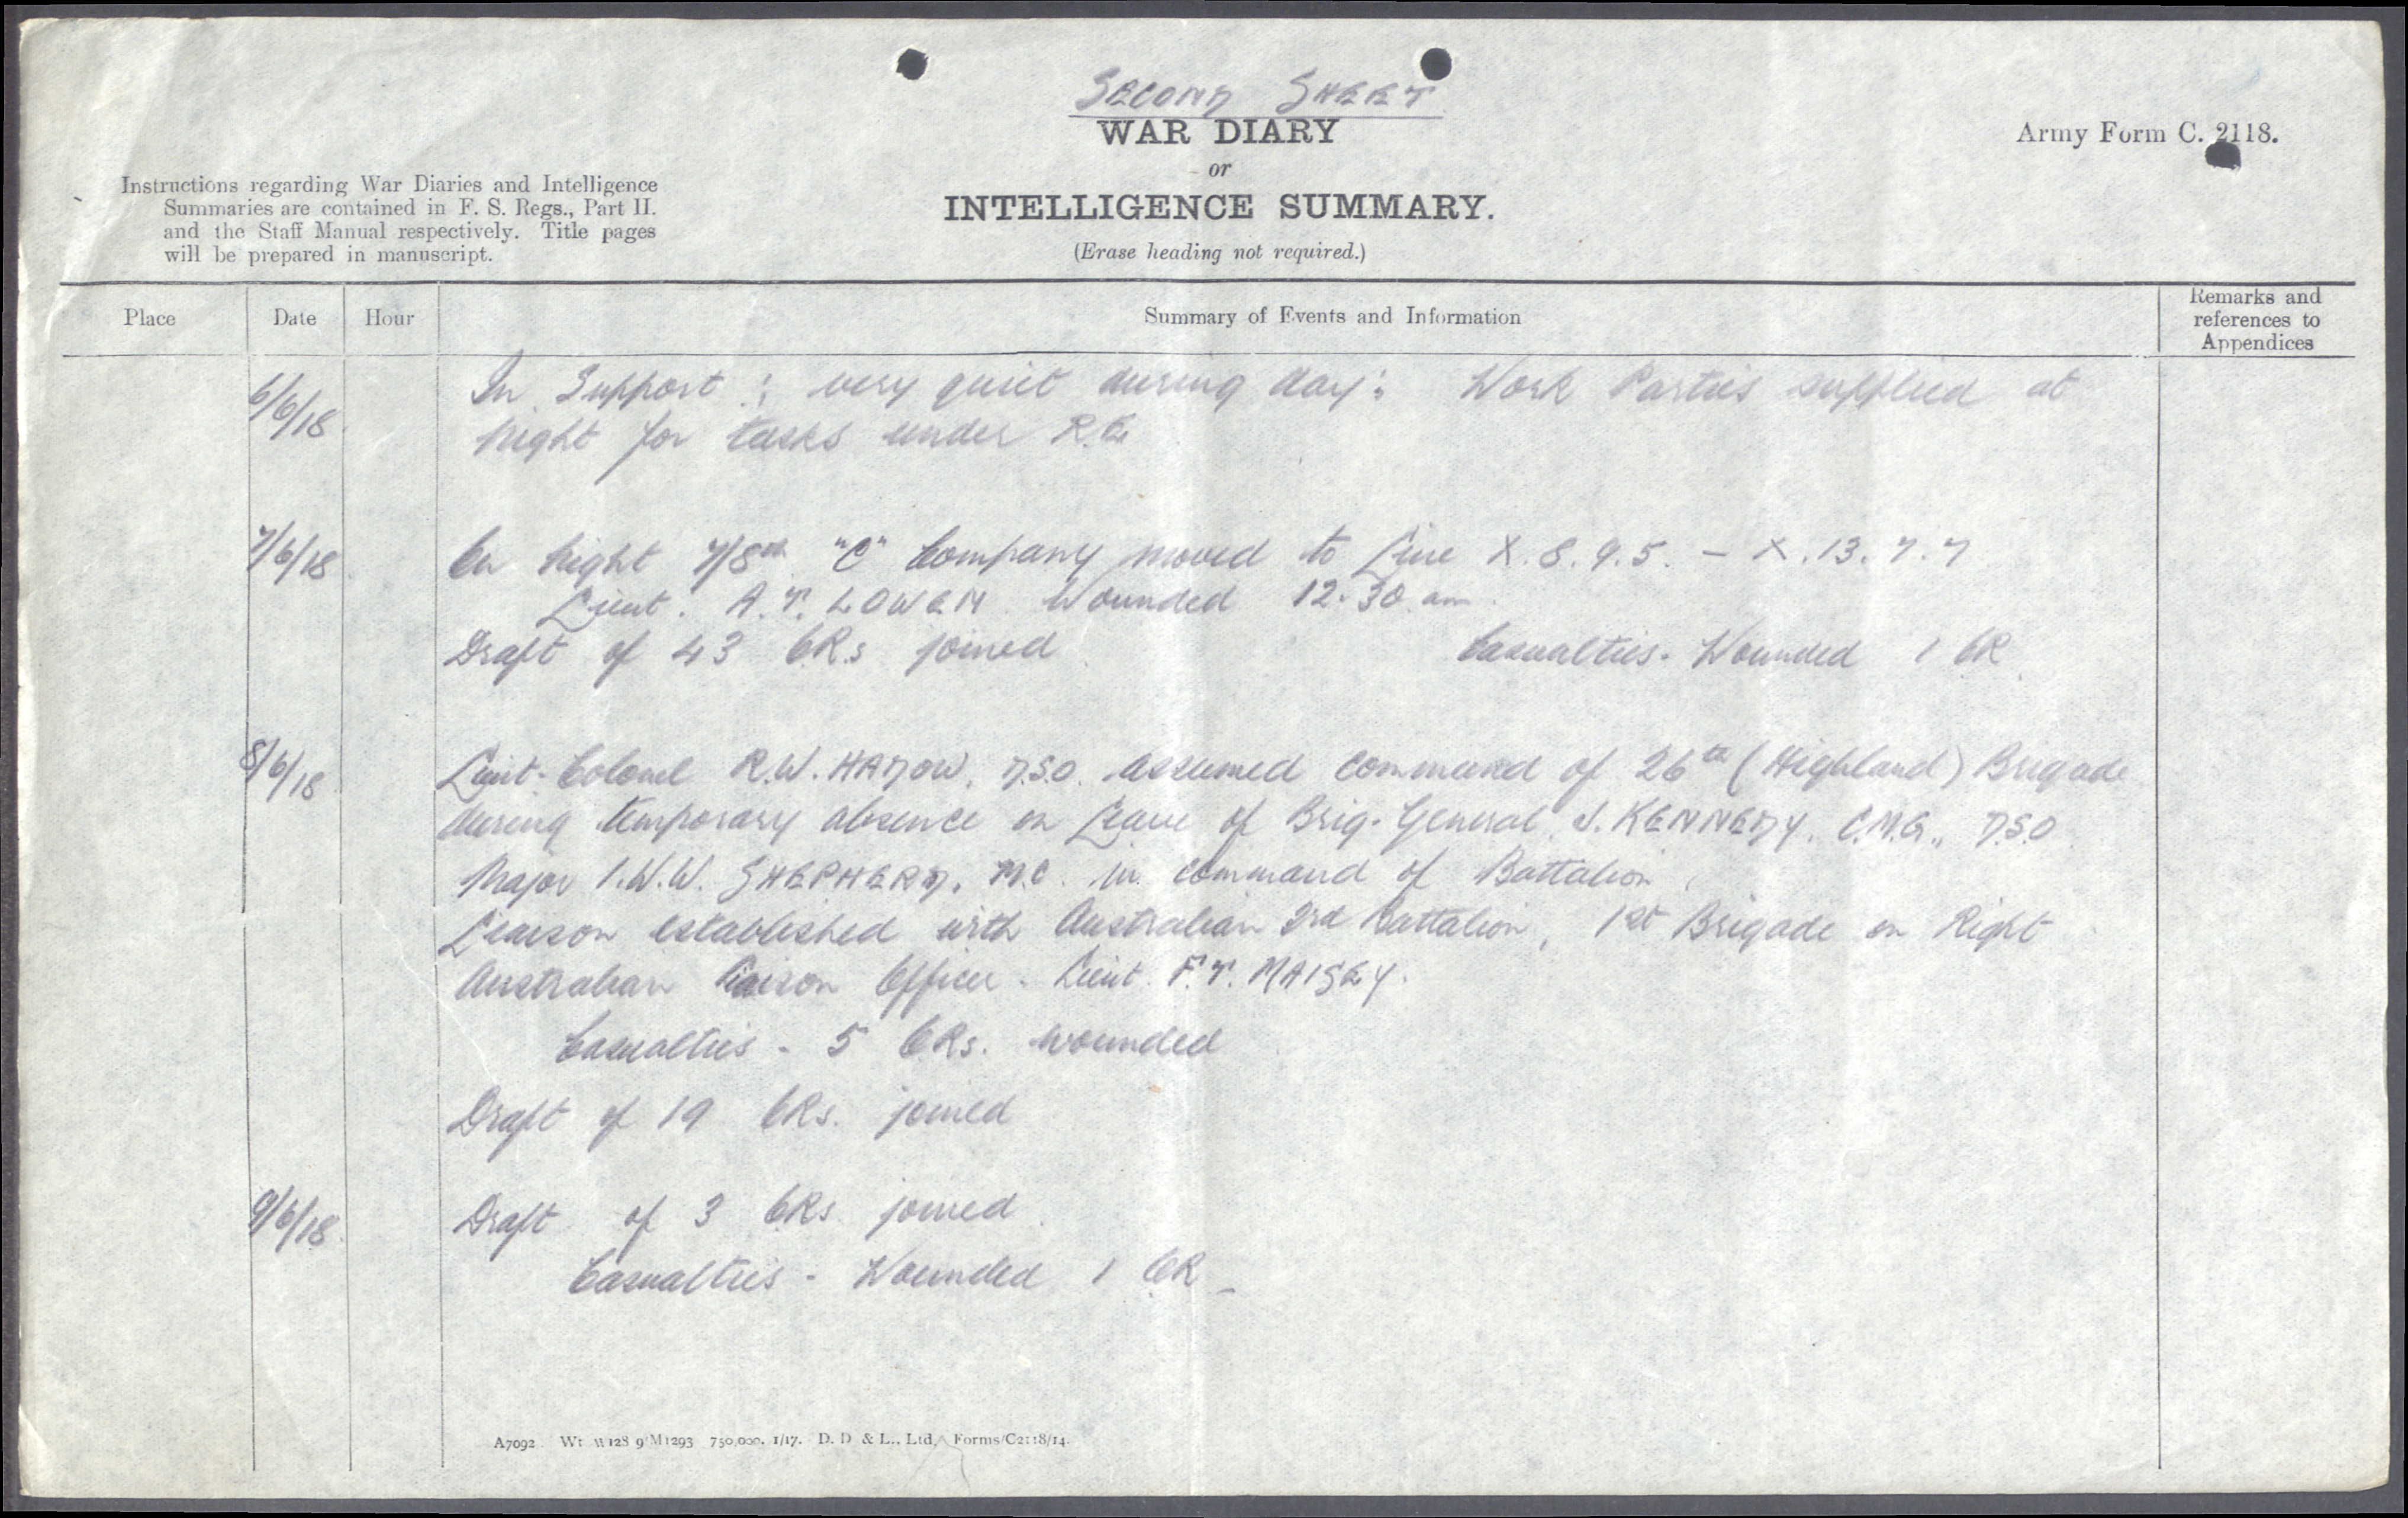 SECOND SHEET
WAR DIARY
or
INTELLIGENCE SUMMARY.
(Erase heading not required.)
Army Form C. 2118.
Instructions regarding War Diaries and Intelligence
Summaries are contained in F. S. Regs., Part II.
and the Staff Manual respectively. Title pages
will be prepared in manuscript.
Place
Date
Hour
Summary of Events and Information
Remarks and
references to
Appendices
6/6/18
In Support : very quiet during day: Work Parties supplied at
night for tasks under R.E.
7/6/18
On Night 7/8th "C" Company moved to Line X.8.9.5. - X.13.7.7
Lieut. A.T. LOWEN Wounded 12.30 am.
Draft of 43 ORs joined
Casualties - Wounded 1 OR.
8/6/18
Lieut-Colonel R.W. HADOW, D.S.O. assumed command of 26th (Highland) Brigade
during temporary absence on Leave of Brig-General J. KENNEDY. C.M.G., D.S.O
Major I.W.W. SHEPHERD, M.C. in command of Battalion
Liaison established with Australian 3rd Battalion, 1st Brigade on Right
Australian Liaison Officer - Lieut. F.T. MAISEY.
Casualties - 5 ORs. wounded
Draft of 19 ORs. joined
9/6/18
Draft of 3 ORs joined
Casualties - Wounded 1 OR -
A7092. Wt. W128 9/M1293 750,000. 1/17. D. D & L., Ltd. Forms/C2118/14.